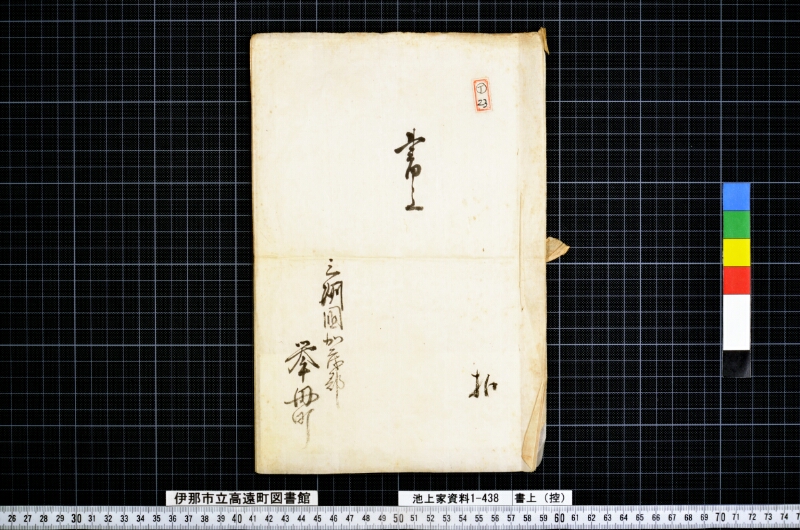 ① 23
書上
控
三州國加茂郡
挙母町
伊那市立高遠町図書館
池上家資料1-438
書上（控）
26 27 28 29 30 31 32 33 34 35 36 37 38 39 40 41 42 43 44 45 46 47 48 49 50 51 52 53 54 55 56 57 58 59 60 61 62 63 64 65 66 67 68 69 70 71 72 73 74